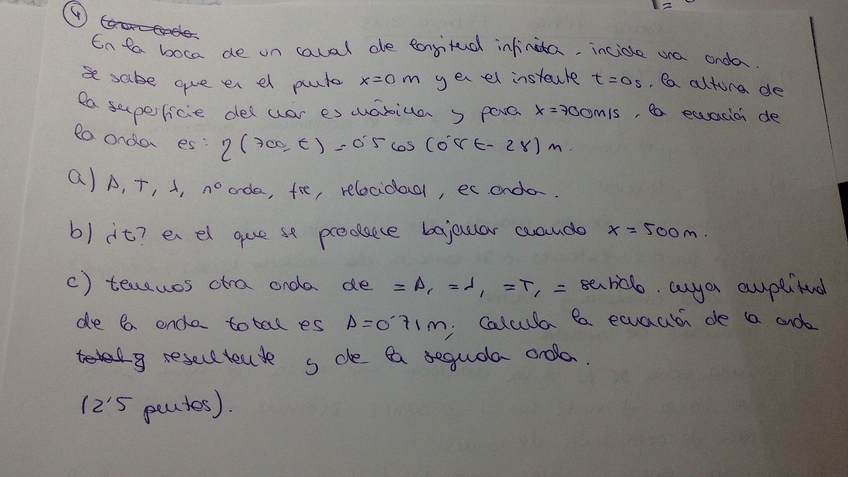 4
En la boca de un canal de longitud infinita, incide una onda.
se sabe que en el punto x=0m y en el instante t=0s, la altura de
la superficie del mar es máxima y para x=700m/s, la ecuación de
la onda es: η(700, t) = 0'5 cos (0'8t - 28) m.
a) A, T, λ, nº onda, fre, velocidad, ec onda.
b) ¿t? en el que se produce bajamar cuando x = 500m.
c) tenemos otra onda de = A, = λ, = T, = sentido. cuya amplitud
de la onda total es A=0'71m; Calcula la ecuación de la onda
total y resultante y de la segunda onda.
(2'5 puntos).